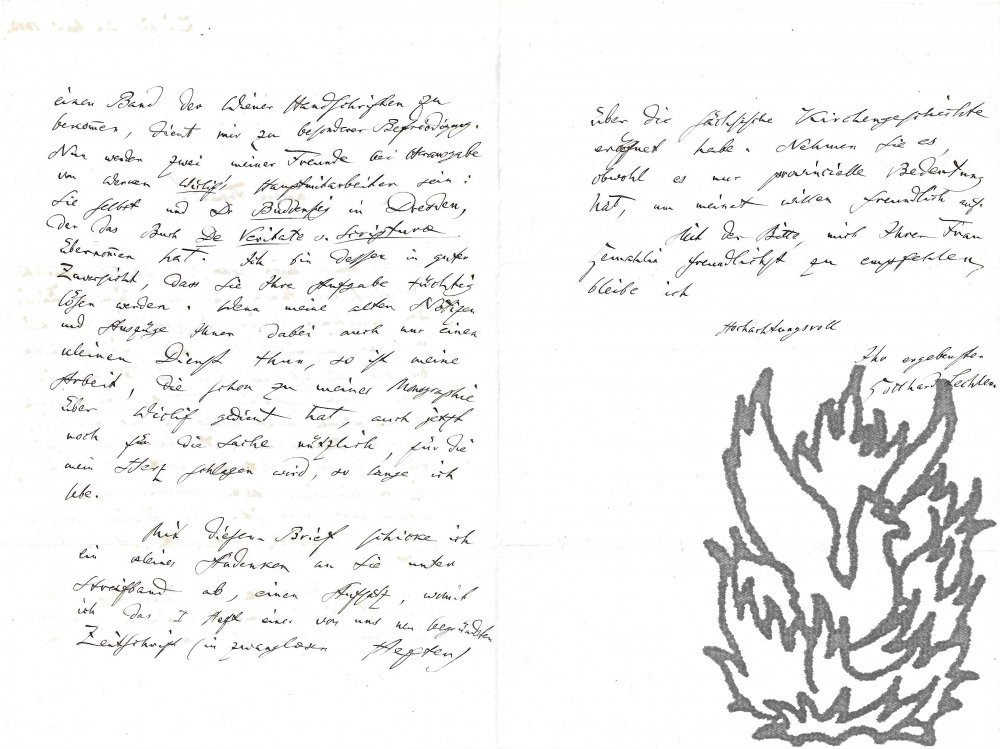 einen Band der Wiener Handschriften zu
bekommen, dient mir zu besonderer Befriedigung.
Nun werden zwei meiner Freunde bei Herausgabe
von Werken Wiclif's Hauptmitarbeiter sein:
Sie selbst und Dr Buddensieg in Dresden,
der das Buch De Veritate s. Scripturae
übernommen hat. Ich bin dessen in guter
Zuversicht, dass Sie Ihre Aufgabe tüchtig
lösen werden. Wenn meine alten Notizen
und Auszüge Ihnen dabei auch nur einen
kleinen Dienst thun, so ist meine
Arbeit, die schon zu meiner Monographie
über Wiclif gedient hat, auch jetzt
noch für die Sache nützlich, für die
mein Herz schlagen wird, so lange ich
lebe.
Mit diesem Brief schicke ich
ein kleines Andenken an Sie unter
Streifband ab, einen Aufsatz, womit
ich das I Heft einer von uns neu begründeten
Zeitschrift (in zwanglosen Heften)
über die sächsische Kirchengeschichte
eröffnet habe. Nehmen Sie es,
obwohl es nur provincielle Bedeutung
hat, um meinet willen freundlich auf.
Mit der Bitte, mich Ihrer Frau
Gemahlin freundlichst zu empfehlen,
bleibe ich
Hochachtungsvoll
Ihr ergebenster
Gotthard Lechler